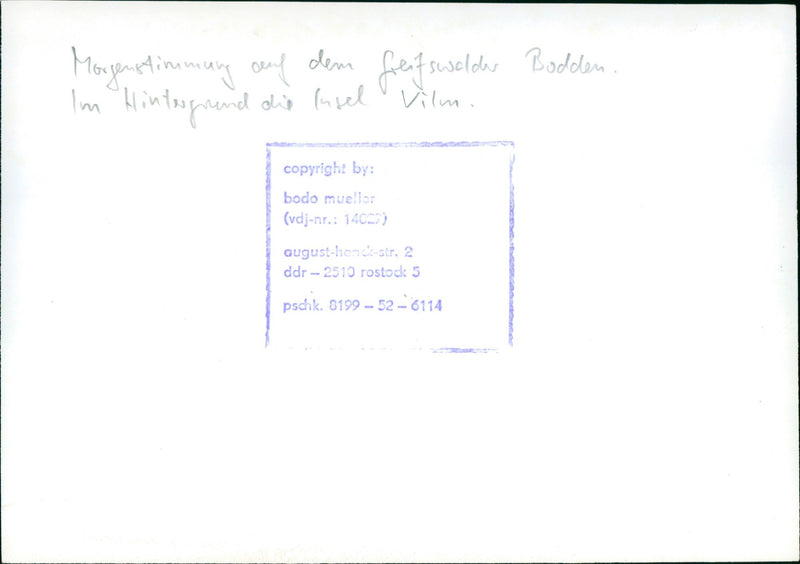 Morgenstimmung auf dem Greifswalder Bodden.
Im Hintergrund die Insel Vilm.
copyright by:
bodo mueller
(vdj-nr.: 14027)
august-henck-str. 2
ddr – 2510 rostock 5
pschk. 8199 – 52 – 6114